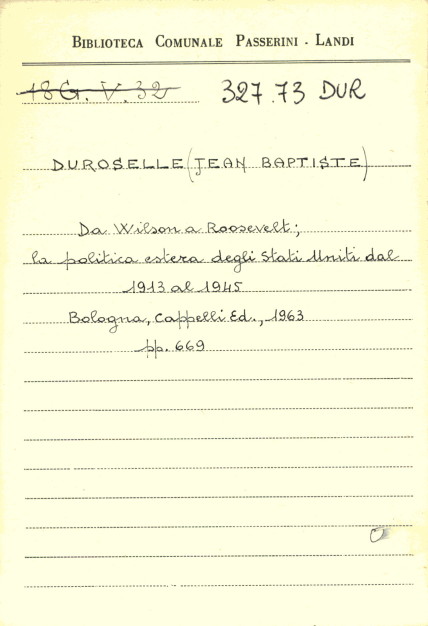 BIBLIOTECA COMUNALE PASSERINI - LANDI
18 G. V. 32 327.73 DUR
DUROSELLE (JEAN BAPTISTE)
Da Wilson a Roosevelt;
la politica estera degli Stati Uniti dal
1913 al 1945
Bologna, Cappelli Ed., 1963
pp. 669